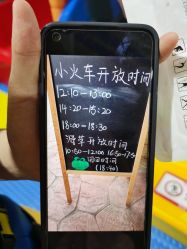 小火车开放时间
12:10-13:00
14:20-15:20
18:00-18:30
滑草开放时间
10:50-12:00 16:50-17:5
时间
(18:40)